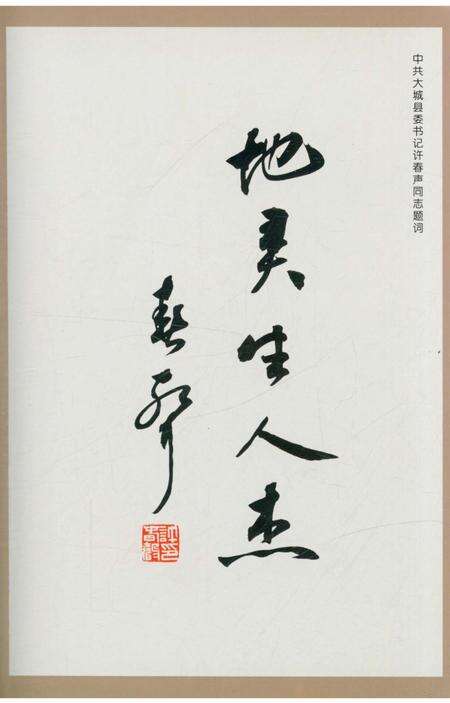 中共大城县委书记许春声同志题词
地灵生人杰
春声
许春声印